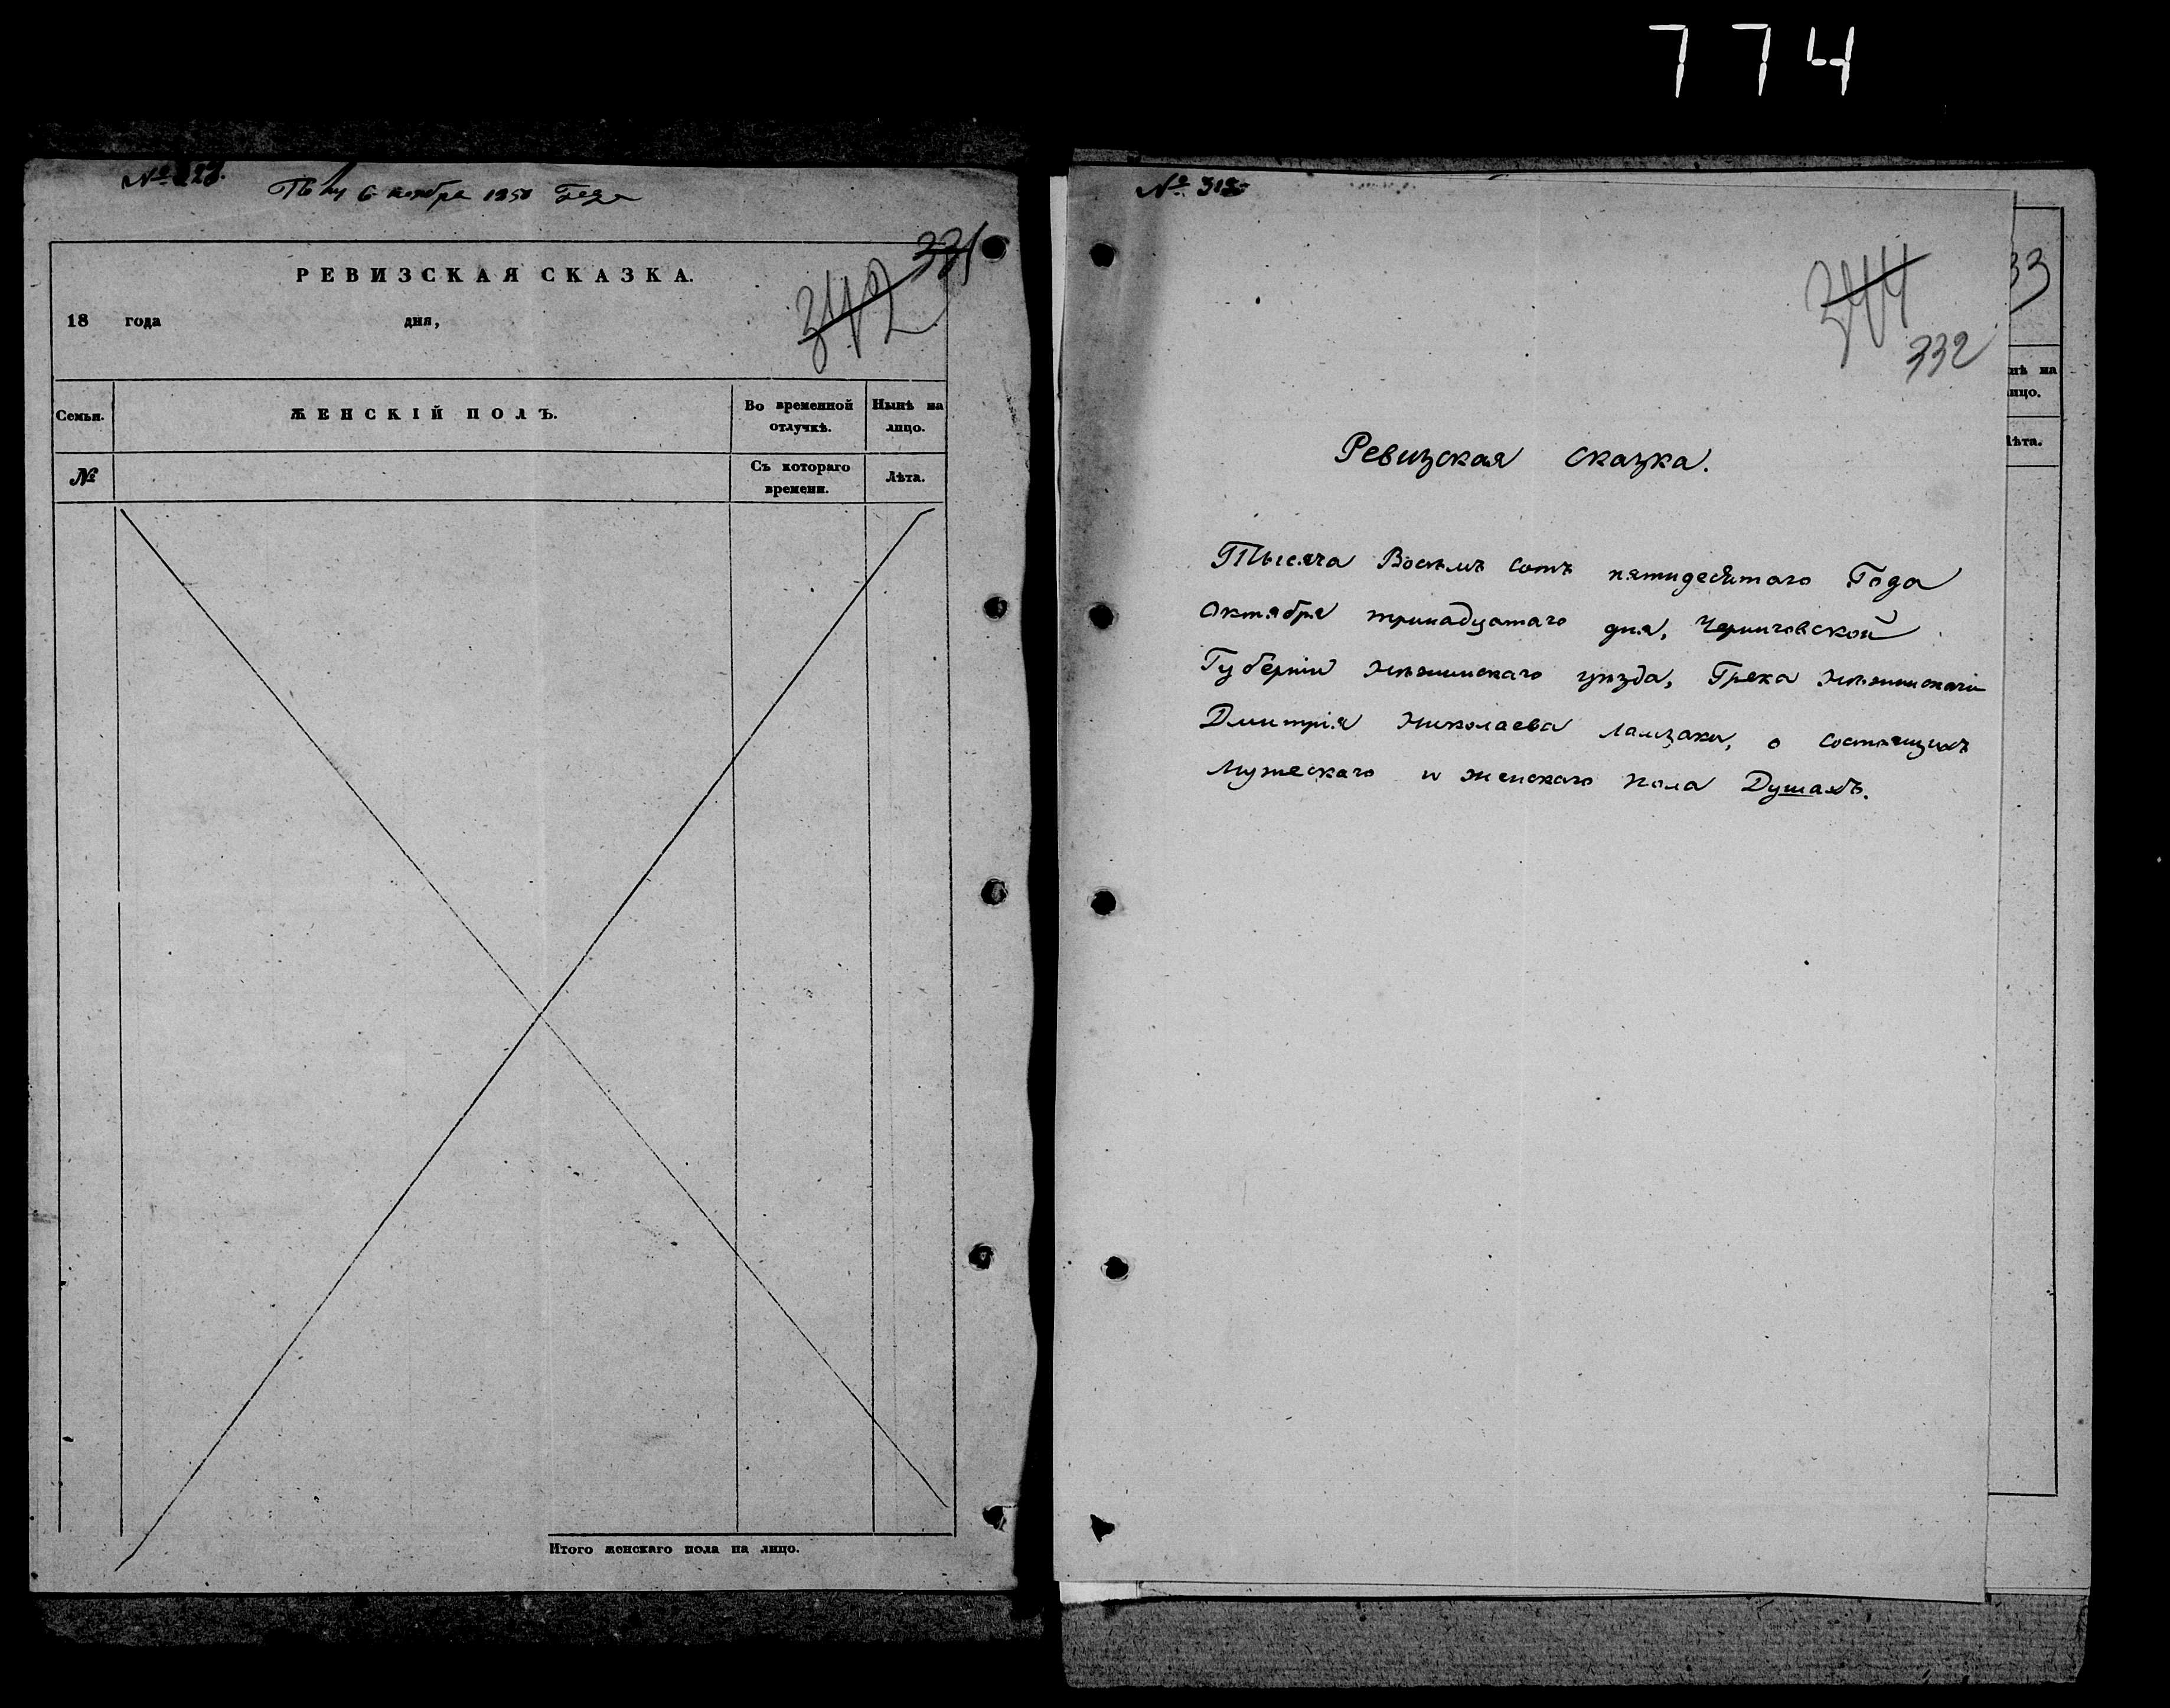 774
6 ноября 1850 года
РЕВИЗСКАЯ СКАЗКА.
331
342
18 года дня,
Семьи.
ЖЕНСКІЙ ПОЛЪ.
Во временной отлучкѣ.
Нынѣ на лицо.
№
Съ котораго времени.
Лѣта.
Итого женскаго пола на лицо.
№ 312
344
332
33
Ревизская сказка.
Тысяча Восемъ сотъ пятидесятаго Года
Октября тринадцатаго дня, Черниговской
Губерніи Нѣжинскаго уѣзда, Грека Нѣжинскаго
Дмитрія Николаева Ламзаки, о состоящихъ
Мужескаго и женскаго пола Душахъ.
нѣ на
ицо.
ѣта.